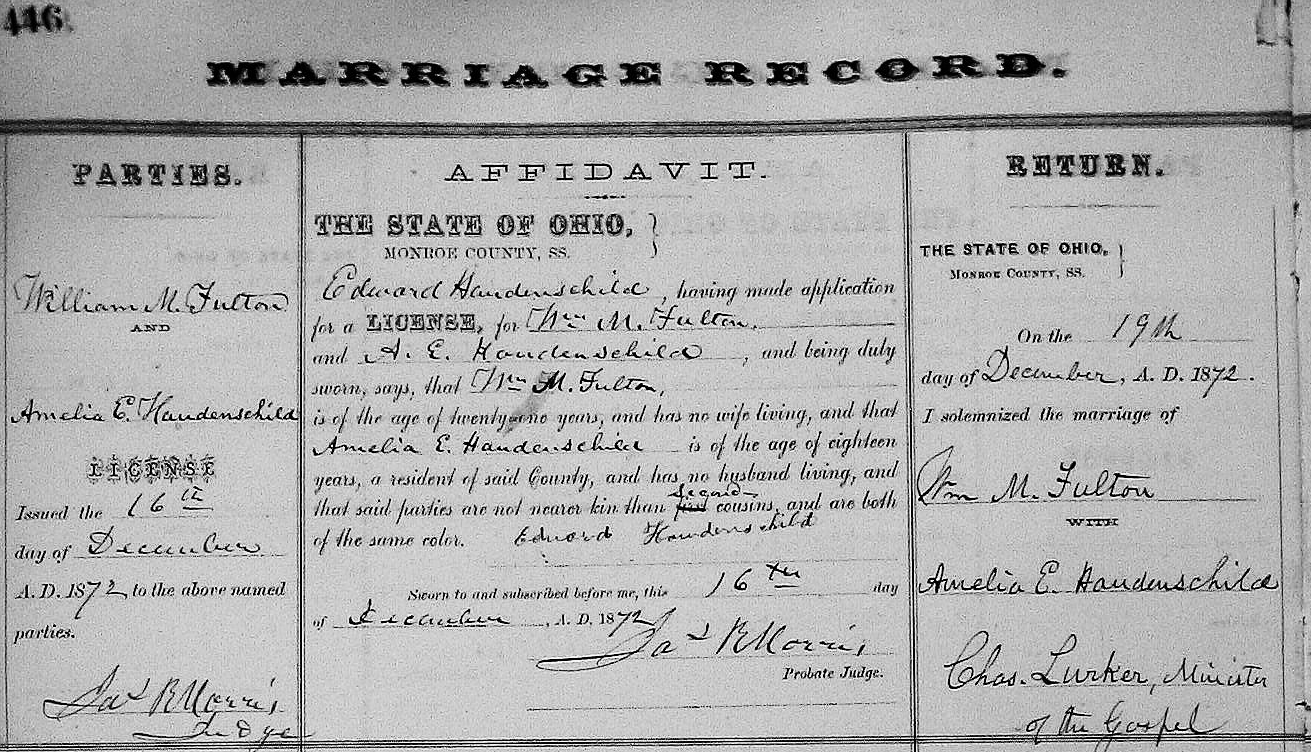 446.
MARRIAGE RECORD.
PARTIES.
William M. Fulton
AND
Amelia E. Haudenschild
LICENSE
Issued the 16th
day of December
A. D. 1872 to the above named
parties.
Jas R Morris
Judge
AFFIDAVIT.
THE STATE OF OHIO,
MONROE COUNTY, SS.
Edward Haudenschild, having made application
for a LICENSE, for Wm M. Fulton.
and A. E. Haudenschild, and being duly
sworn, says, that Wm M. Fulton,
is of the age of twenty-one years, and has no wife living, and that
Amelia E. Haudenschild is of the age of eighteen
years, a resident of said County, and has no husband living, and
second
that said parties are not nearer kin than first cousins, and are both
of the same color. Edward Haudenschild
Sworn to and subscribed before me, this 16th day
of December, A. D. 1872
Jas R Morris
Probate Judge.
RETURN.
THE STATE OF OHIO,
MONROE COUNTY, SS.
On the 19th
day of December, A. D. 1872.
I solemnized the marriage of
Wm M. Fulton
WITH
Amelia E. Haudenschild
Chas. Lurker, Minister
of the Gospel